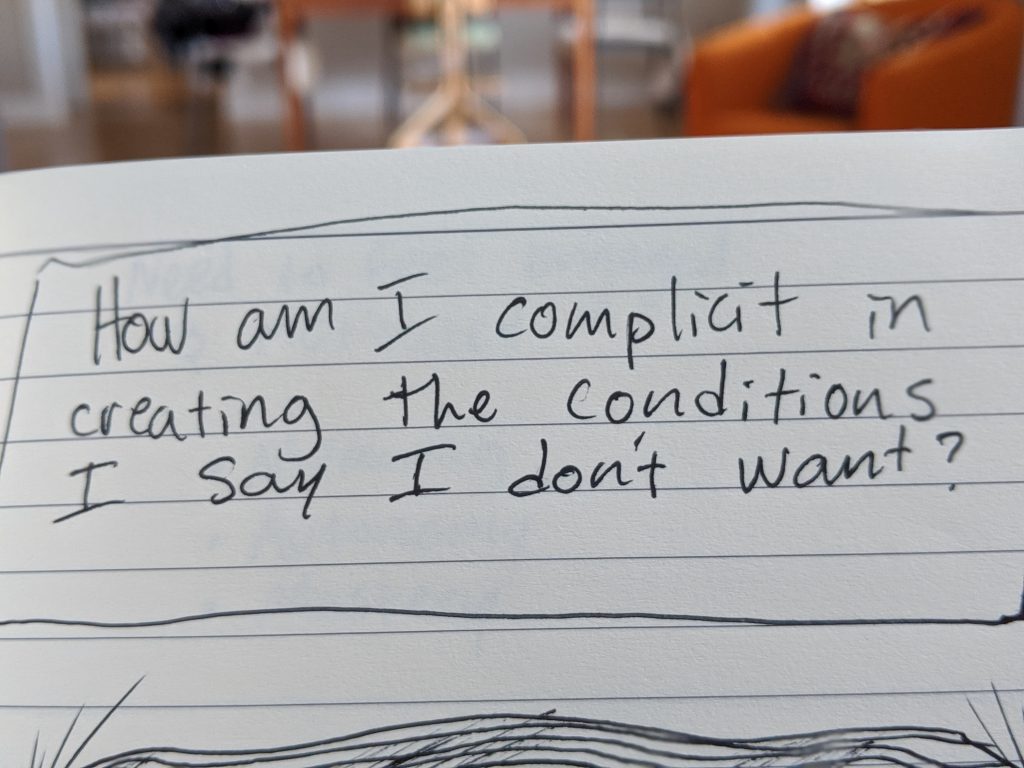 How am I complicit in
creating the conditions
I say I don't want?